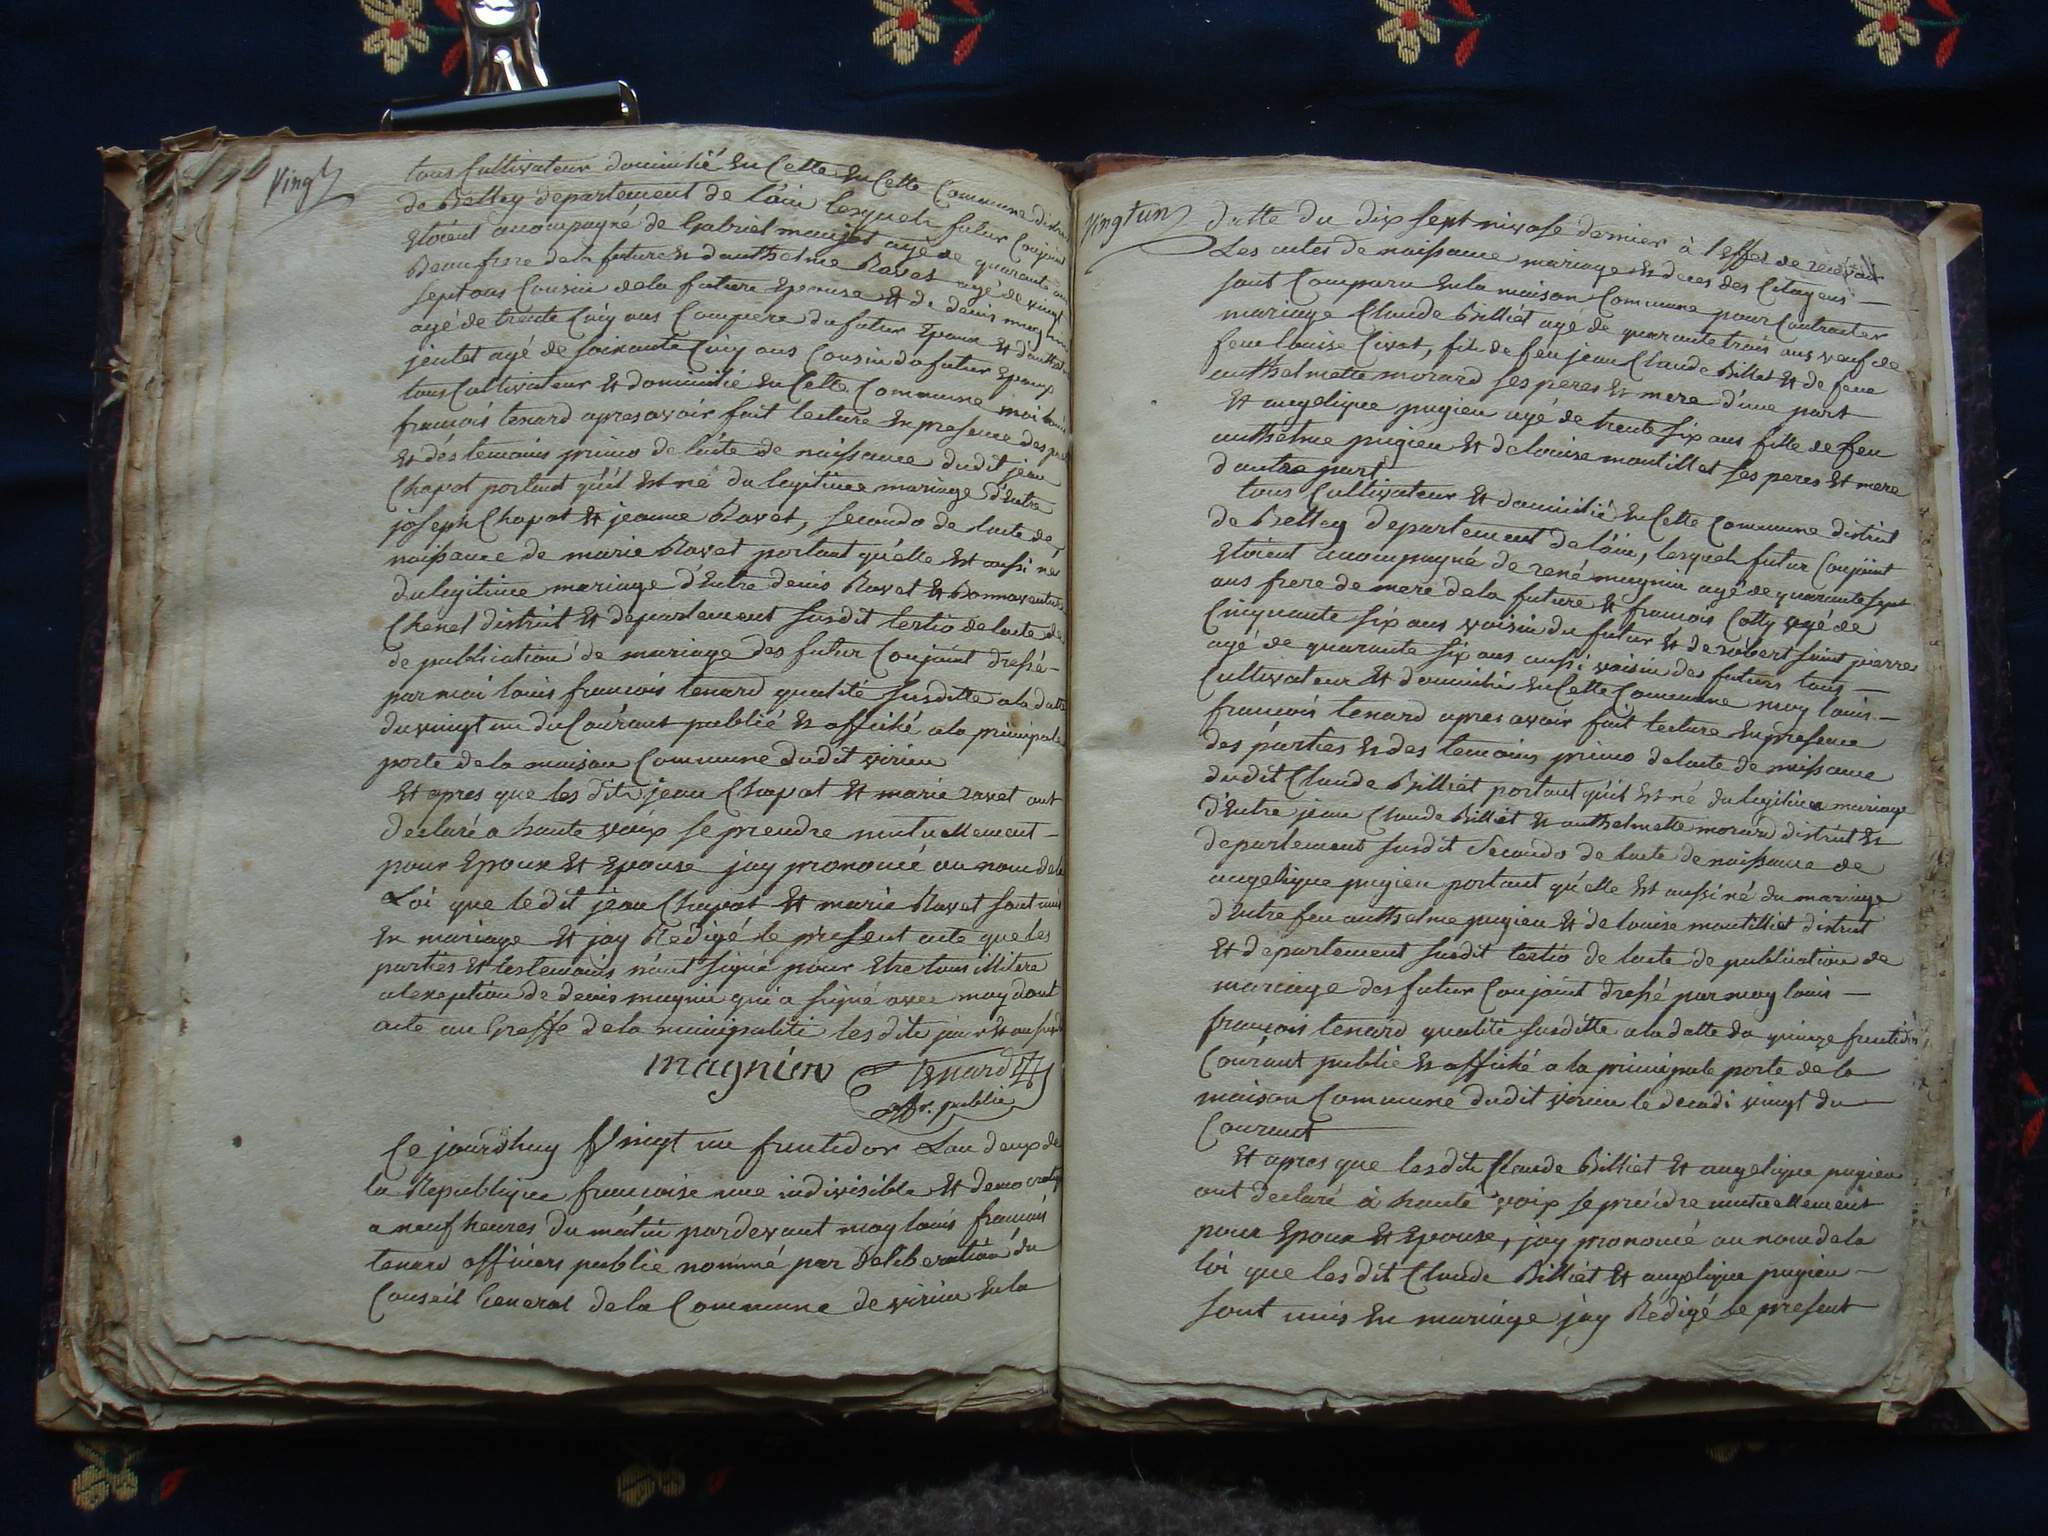 Vingt
tous Cultivateur domicilié en Cette en Cette Commune district
de Belley departement de l'ain lesquels futur Conjoint
etoient acompagné de Gabriel maujot agé de quarante ans
Beaufrere de la future et d'anthelme Ravet agé de vingt
sept ans Cousin de la future Epouse et de denis magnin
agé de trente Cinq ans Compere du futur Epoux et d'anthelme
jentet agé de soixante Cinq ans Cousin du futur Epoux
tous Cultivateur et domicilié en Cette Commune moi louis
francois tenard apres avoir fait lecture en presence des
et des temoins primo de l'acte de naissance dudit jean
Chapot portant qu'il est né du legitime mariage d'Entre
joseph Chapot et jeanne Ravet, secondo de lacte de
naissance de marie Ravet portant qu'elle est aussi née
du legitime mariage d'Entre denis Ravet et Bonnaventure
Chenel district et departement susdit tertio de lacte de
de publication de mariage des futur Conjoint dressé
par moi louis francois tenard qualité susditte a la datte
du vingt un du Courant publié et affiché a la principale
porte de la maison Commune dudit virieu
et apres que les dits jean Chapot et marie ravet ont
declaré a haute voix se prendre mutuellement
pour Epoux et Epouse jay prononcé au nom de la
Loi que ledit jean Chapot et marie Ravet sont unis
en mariage et jay Redigé le present acte que les
parties et les temoins n'ont signé pour etre tous illitere
al exeption de denis magnin qui a signé avec moy dont
acte au Greffe de la municipalité les dits jour et an susdit
magnien tenard
offr. public
Ce jourdhuy Vingt un fructidor Lan deux de
la Republique francoise une indivisible et democratique
a neuf heures du matin pardevant moy louis francois
tenard officiers public nommé par deliberation du
Conseil General de la Commune de virieu en la
Vingtun
datte du dix sept nivose dernier à l'effet de recevoir
Les actes de naissance mariage et deces des Citoyens
sont Comparu en la maison Commune pour Contracter
mariage Claude Billiet agé de quarante trois ans veuf de
feue louise Civat, fils de feu jean Claude Billet et de feue
anthelmette morard ses peres et mere d'une part
et angelique pugieu agé de trente six ans fille de feu
anthelme pugieu et de louise montillet ses peres et mere
dautre part
tous Cultivateur et domicilié en Cette Commune district
de Belley departement de l'ain, lesquels futur Conjoint
etoient acompagné de rené magnin agé de quarante sept
ans frere de mere de la future et francois Cotty agé de
Cinquante six ans voisin du futur et de robert saint pierre
agé de quarante six ans aussi voisin des futurs tous
Cultivateur et domicilié en Cette Commune moy louis
francois tenard apres avoir fait lecture en presence
des parties et des temoins primo de lacte de naissance
dudit Claude Billiet portant qu'il est né du legitime mariage
d'Entre jean Claude Billiet et anthelmette morard district et
departement susdit Secondo de lacte de naissance de
angelique pugieu portant qu'elle est aussi né du mariage
d'Entre feu anthelme pugieu et de louise montilliet district
et departement susdit tertio de lacte de publication de
mariage des futur Conjoint dressé par moy louis
francois tenard qualité susditte a la datte du quinze fructidor
Courant publié et affiché a la principale porte de la
maison Commune dudit virieu le decadi vingt du
Courant
et apres que lesdits Claude Billiet et angelique pugieu
ont declaré à haute voix se prendre mutuellement
pour Epoux et Epouse, jay prononcé au nom de la
loi que les dit Claude Billiet et angelique pugieu
sont unis en mariage jay Redigé le present